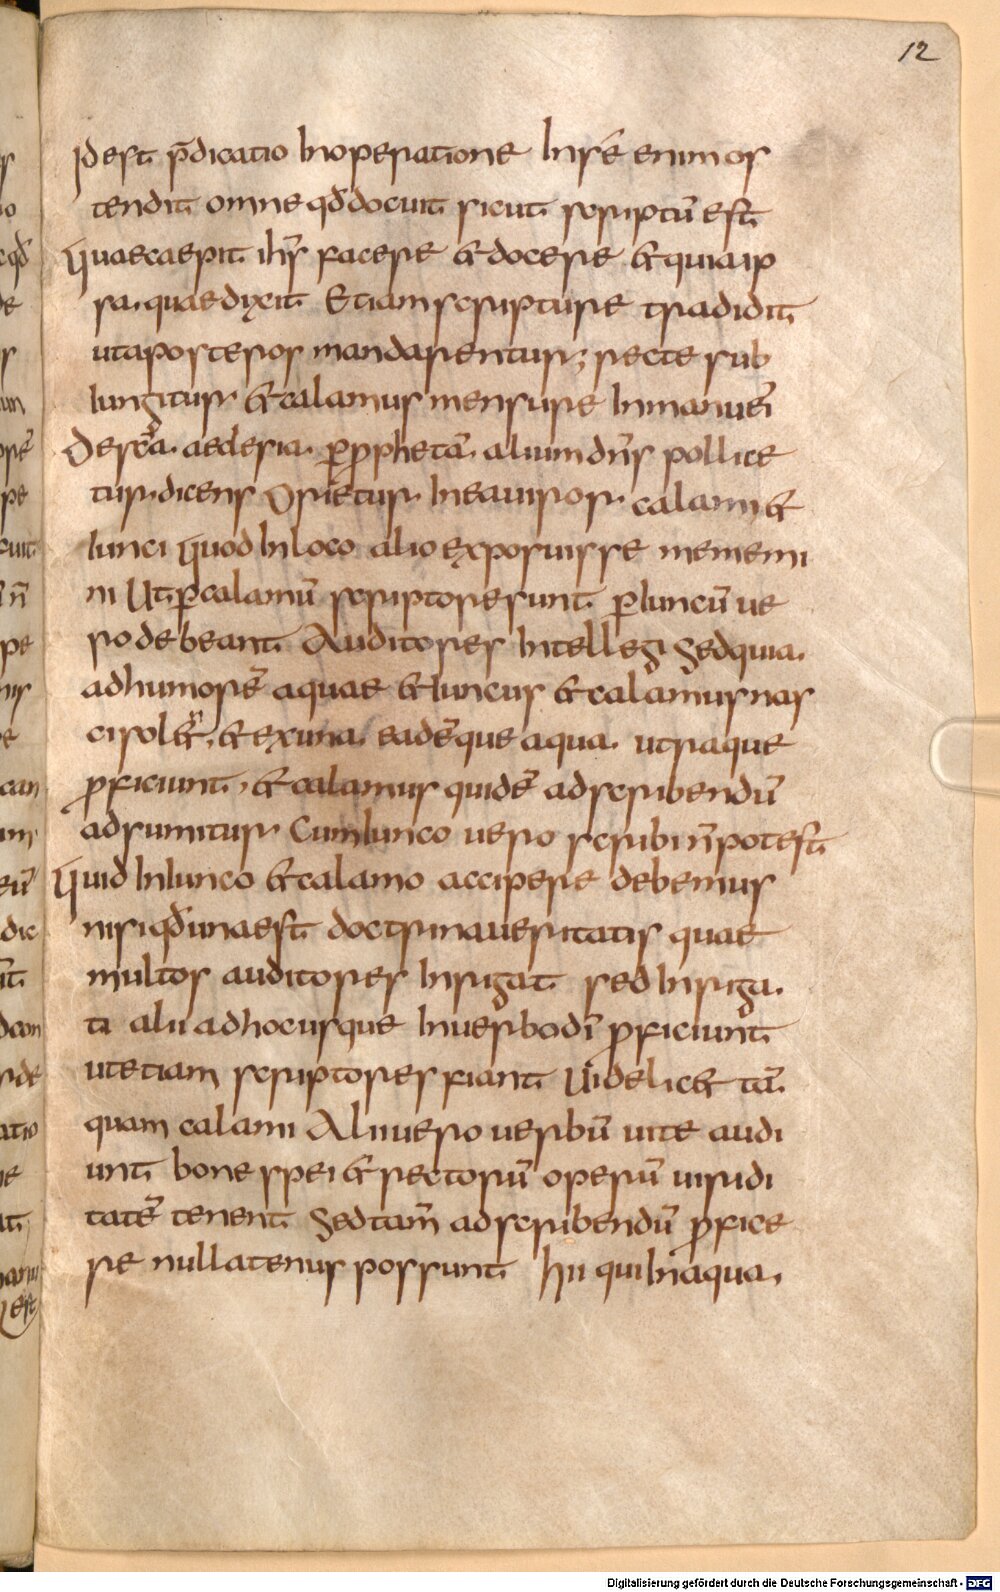 12
Id est p̄dicatio in operatione in sē enim os
tendit omne qđ docuit sicut scriptū est
Quae caepit ihs̄ facere & docere & quia ip
sa. quae dixit Etiam scripture tradidit
ut a posteros mandarentur; recte sub
iungitur. & calamus mensure in manu eī
De sc̄a. aeclesia. p̱ prophetā. alium dn̄s pollice
tur. dicens Orietur. in ea uiror. calami &
iunci quod in loco alio exposuisse memémi
ni Ut p̱ calamū scriptores sunt p̱ iuncū ue
ro debeant Auditores intellegi sed quia.
ad humorē aquae & iuncus & calamus nas
ci sol&. & ex una. eadēque aqua. utraque
proficiunt. & calamus quidē ad scribendū
adsumitur. Cum iunco uero scribi n̄ potest
Quid in iunco & calamo accipere debemus
nisi qđ una est doctrina ueritatis quae
multos auditores inrigat sed inriga.
ti alii ad hoc usque in uerbo dī proficiunt
ut etiam scriptores fiant Videlic& tā.
quam calami Alii uero uerbū uite audi
unt bone spei & rectorū operū uiridi
tatē tenent Sed tam̄ ad scribendū profice
re nullatenus possunt hii qui in aqua.
Digitalisierung gefördert durch die Deutsche Forschungsgemeinschaft - DFG